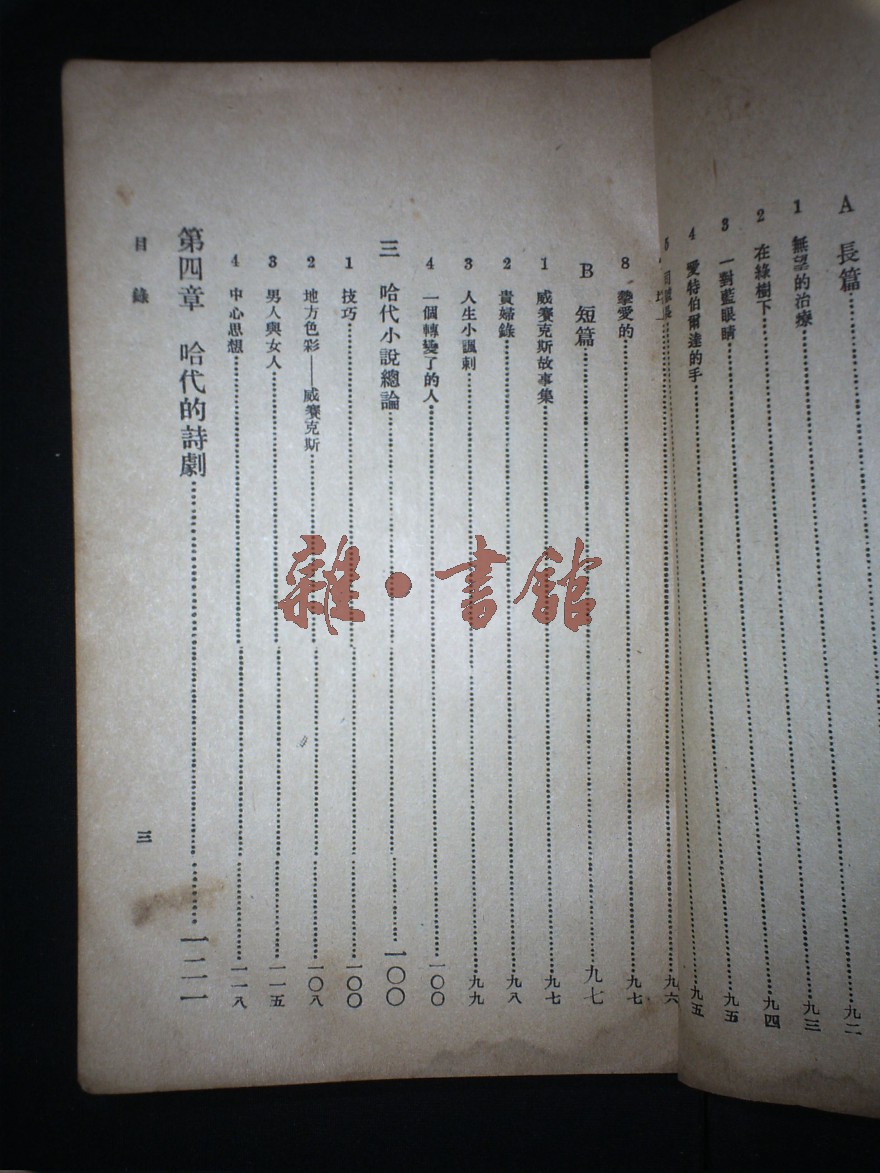 A 長篇……九二
1 無望的治療……九三
2 在綠樹下……九四
3 一對藍眼睛……九五
4 愛特伯爾達的手……九五
九六
8 摯愛的……九七
B 短篇……九七
1 威賽克斯故事集……九七
2 貴婦錄……九八
3 人生小諷刺……九九
4 一個轉變了的人……一〇〇
三 哈代小說總論……一〇〇
1 技巧……一〇〇
2 地方色彩——威賽克斯……一〇八
3 男人與女人……一一五
4 中心思想……一一八
第四章 哈代的詩劇……一二一
目錄
三
雜·書館